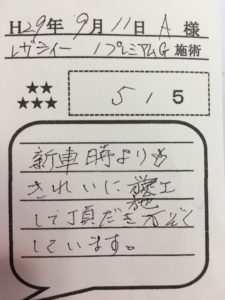 H29年9月11日 A 様
レガシィー / プレミアムG 施術
★★
★★★
5 / 5
新車時よりも
きれいに施工
して頂だき
しています。